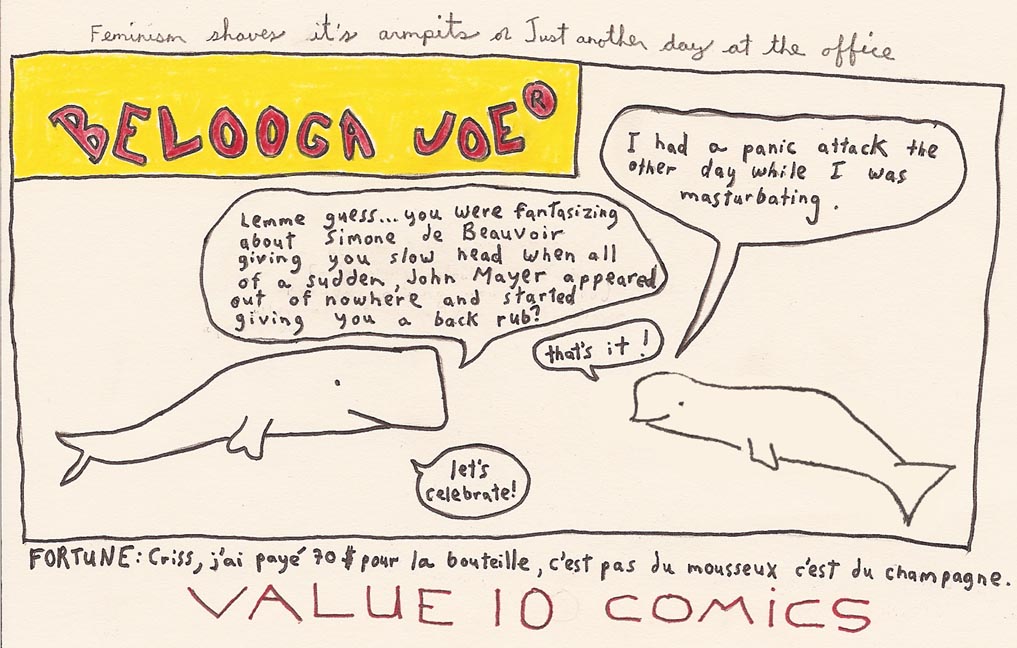 Feminism shaves it's armpits or Just another day at the office
BELOOGA JOE®
I had a panic attack the
other day while I was
masturbating.
Lemme guess... you were fantasizing
about Simone de Beauvoir
giving you slow head when all
of a sudden, John Mayer appeared
out of nowhere and started
giving you a back rub?
that's it!
let's
celebrate!
FORTUNE: Criss, j'ai payé 70$ pour la bouteille, c'est pas du mousseux c'est du champagne.
VALUE 10 COMiCS